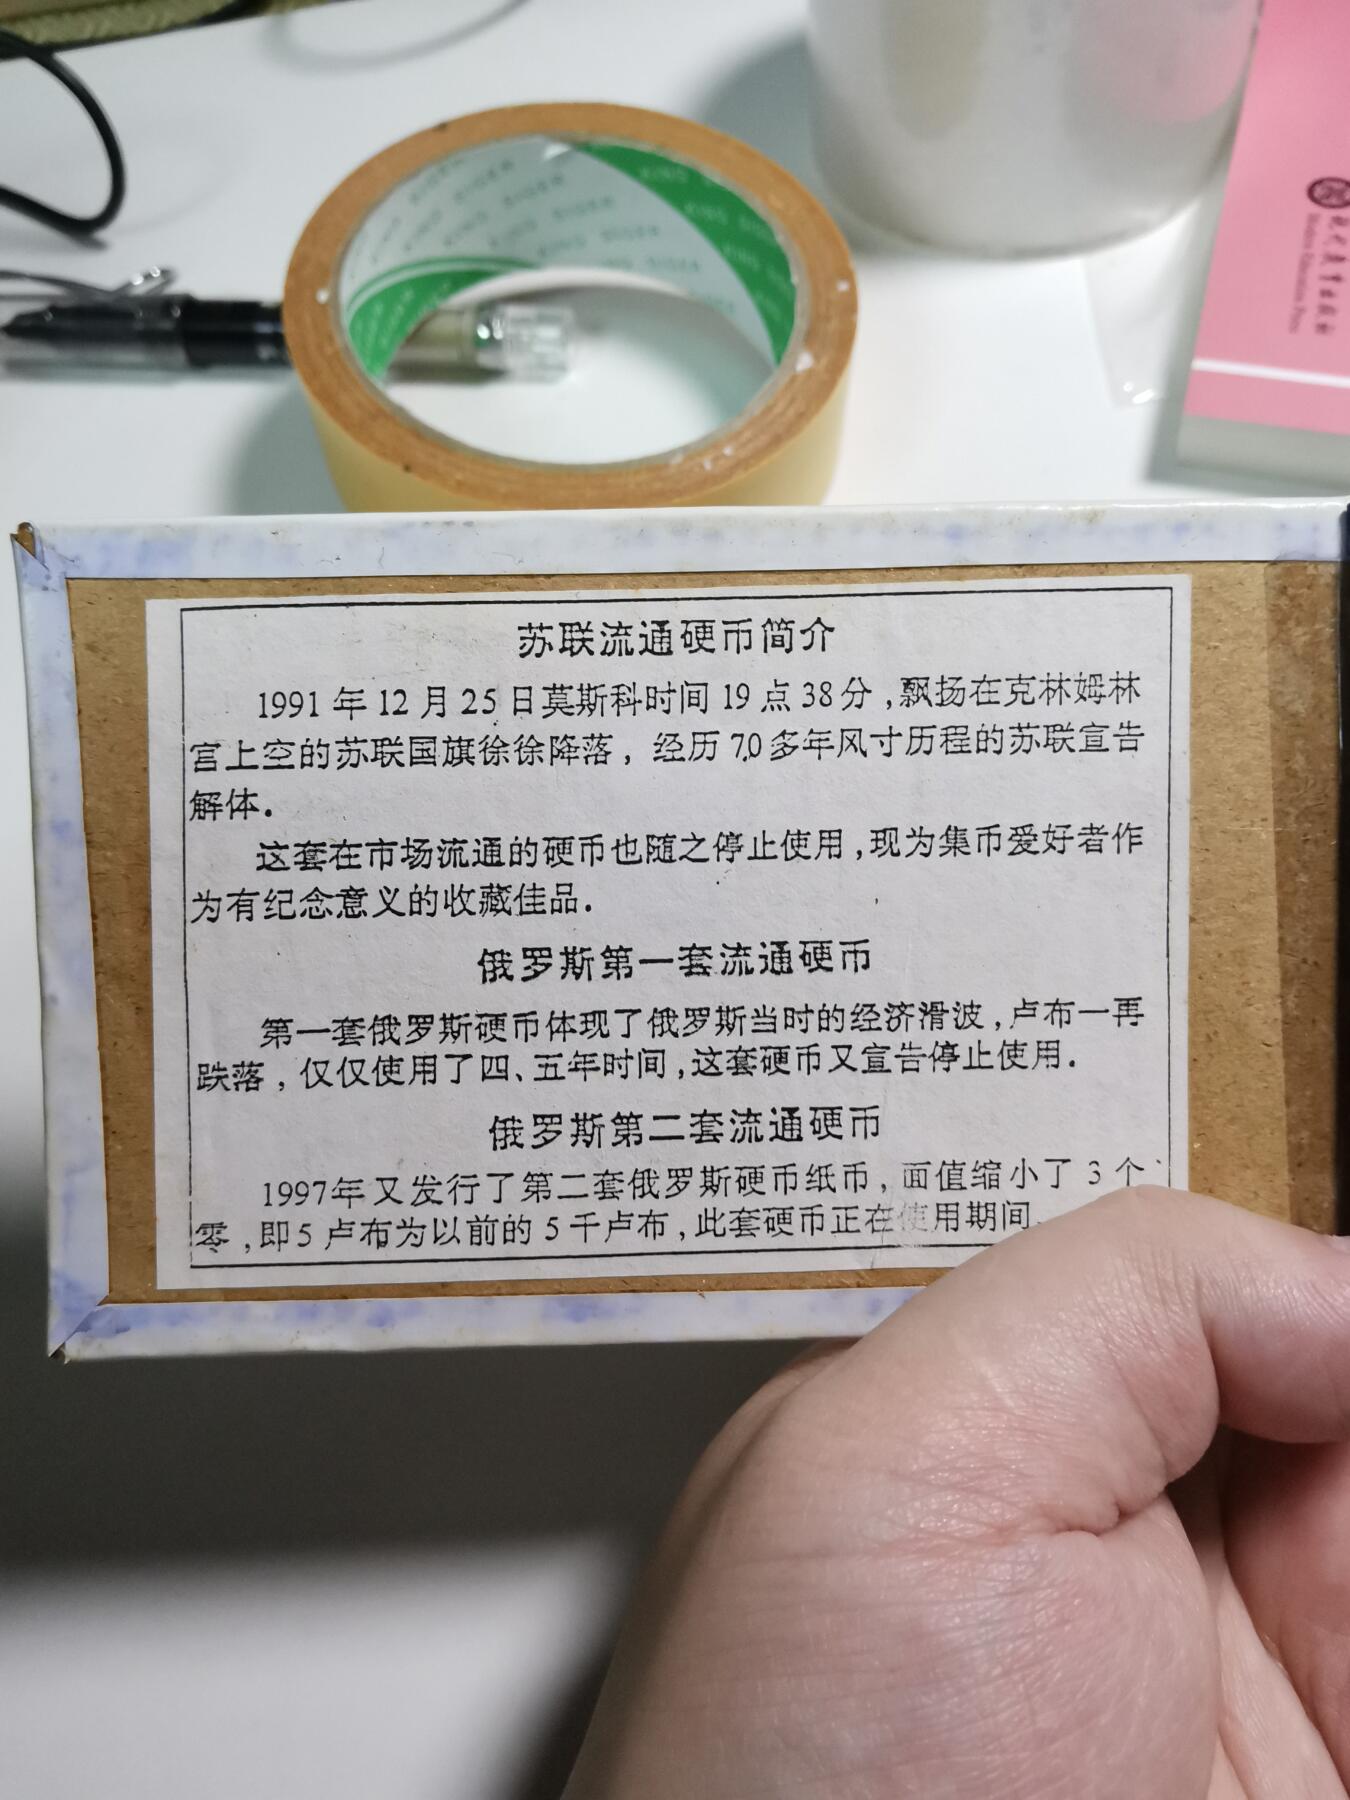 KING SIDER
现代教育出版社
Modern Education Press
苏联流通硬币简介
1991年12月25日莫斯科时间19点38分,飘扬在克林姆林
宫上空的苏联国旗徐徐降落,经历70多年风寸历程的苏联宣告
解体.
这套在市场流通的硬币也随之停止使用,现为集币爱好者作
为有纪念意义的收藏佳品.
俄罗斯第一套流通硬币
第一套俄罗斯硬币体现了俄罗斯当时的经济滑波,卢布一再
跌落,仅仅使用了四、五年时间,这套硬币又宣告停止使用.
俄罗斯第二套流通硬币
1997年又发行了第二套俄罗斯硬币纸币,面值缩小了3个
零,即5卢布为以前的5千卢布,此套硬币正在使用期间